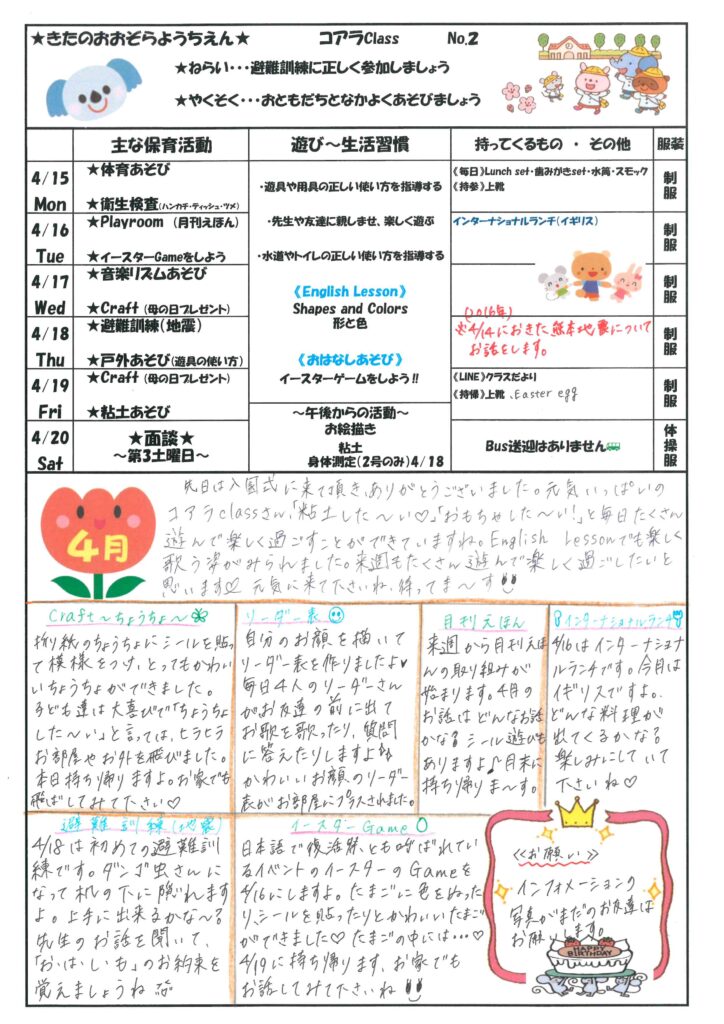 ★きたのおおぞらようちえん★　コアラClass　No.2
★ねらい・・・避難訓練に正しく参加しましょう
★やくそく・・・おともだちとなかよくあそびましょう
主な保育活動　遊び～生活習慣　持ってくるもの ・ その他　服装
4/15 Mon
★体育あそび
★衛生検査(ハンカチ・ティッシュ・ツメ)
《毎日》Lunch set・歯みがきset・水筒・スモック
《持参》上靴
制服
4/16 Tue
★Playroom （月刊えほん）
★イースターGameをしよう
インターナショナルランチ（イギリス）
制服
4/17 Wed
★音楽リズムあそび
★Craft （母の日プレゼント）
制服
4/18 Thu
★避難訓練（地震）
★戸外あそび（遊具の使い方）
(2016年)
※4/14におきた熊本地震について
お話をします。
制服
4/19 Fri
★Craft （母の日プレゼント）
★粘土あそび
《LINE》クラスだより
《持帰》上靴、Easter egg
制服
4/20 Sat
★面談★
～第3土曜日～
Bus送迎はありません
体操服
・遊具や用具の正しい使い方を指導する
・先生や友達に親しませ、楽しく遊ぶ
・水道やトイレの正しい使い方を指導する
《English Lesson》
Shapes and Colors
形と色
《おはなしあそび》
イースターゲームをしよう!!
～午後からの活動～
お絵描き
粘土
身体測定(2号のみ)4/18
4月
先日は入園式に来て頂き、ありがとうございました。元気いっぱいの
コアラclassさん、「粘土した～い♡」「おもちゃした～い!」と毎日たくさん
遊んで楽しく過ごすことができていますね。English Lessonでも楽しく
歌う姿がみられました。来週もたくさん遊んで楽しく過ごしたいと
思います♡ 元気に来て下さいね、待ってま～す!!
Craft～ちょうちょ～
折り紙のちょうちょにシールを貼っ
て模様をつけ、とってもかわい
いちょうちょができました。
子ども達は大喜びで「ちょうちょ
した～い」と言っては、ヒラヒラ
お部屋やお外を飛びました。
本日持ち帰りますよ。お家でも
飛ばしてみて下さい♡
リーダー表
自分のお顔を描いて
リーダー表を作りましたよ♥
毎日4人のリーダーさん
がお友達の前に出て
お歌を歌ったり、質問
に答えたりしますよ
かわいいお顔のリーダー
表がお部屋にプラスされました。
月刊えほん
来週から月刊えほ
んの取り組みが
始まります。4月の
お話はどんなお話
かな? シール遊びも
ありますよ♪月末に
持ち帰りま～す。
インターナショナルランチ
4/16はインターナショナ
ルランチです。今月は
イギリスですよ。
どんな料理が
出てくるかな?
楽しみにしていて
下さいね♡
避難訓練(地震)
4/18は初めての避難訓
練です。ダンゴ虫さんに
なって机の下に隠れます
よ。上手に出来るかな～?
先生のお話を聞いて、
「お・は・し・も」のお約束を
覚えましょうね
イースターGame
日本語で復活祭とも呼ばれてい
るイベントのイースターのGameを
4/16にしますよ。たまごに色をぬった
り、シールを貼ったりとかわいいたまご
ができました♡ たまごの中には…♡
4/19に持ち帰ります、お家でも
お話してみて下さいね!!
《お願い》
インフォメーションの
写真がまだのお友達は
お願いします。
HAPPY BIRTHDAY